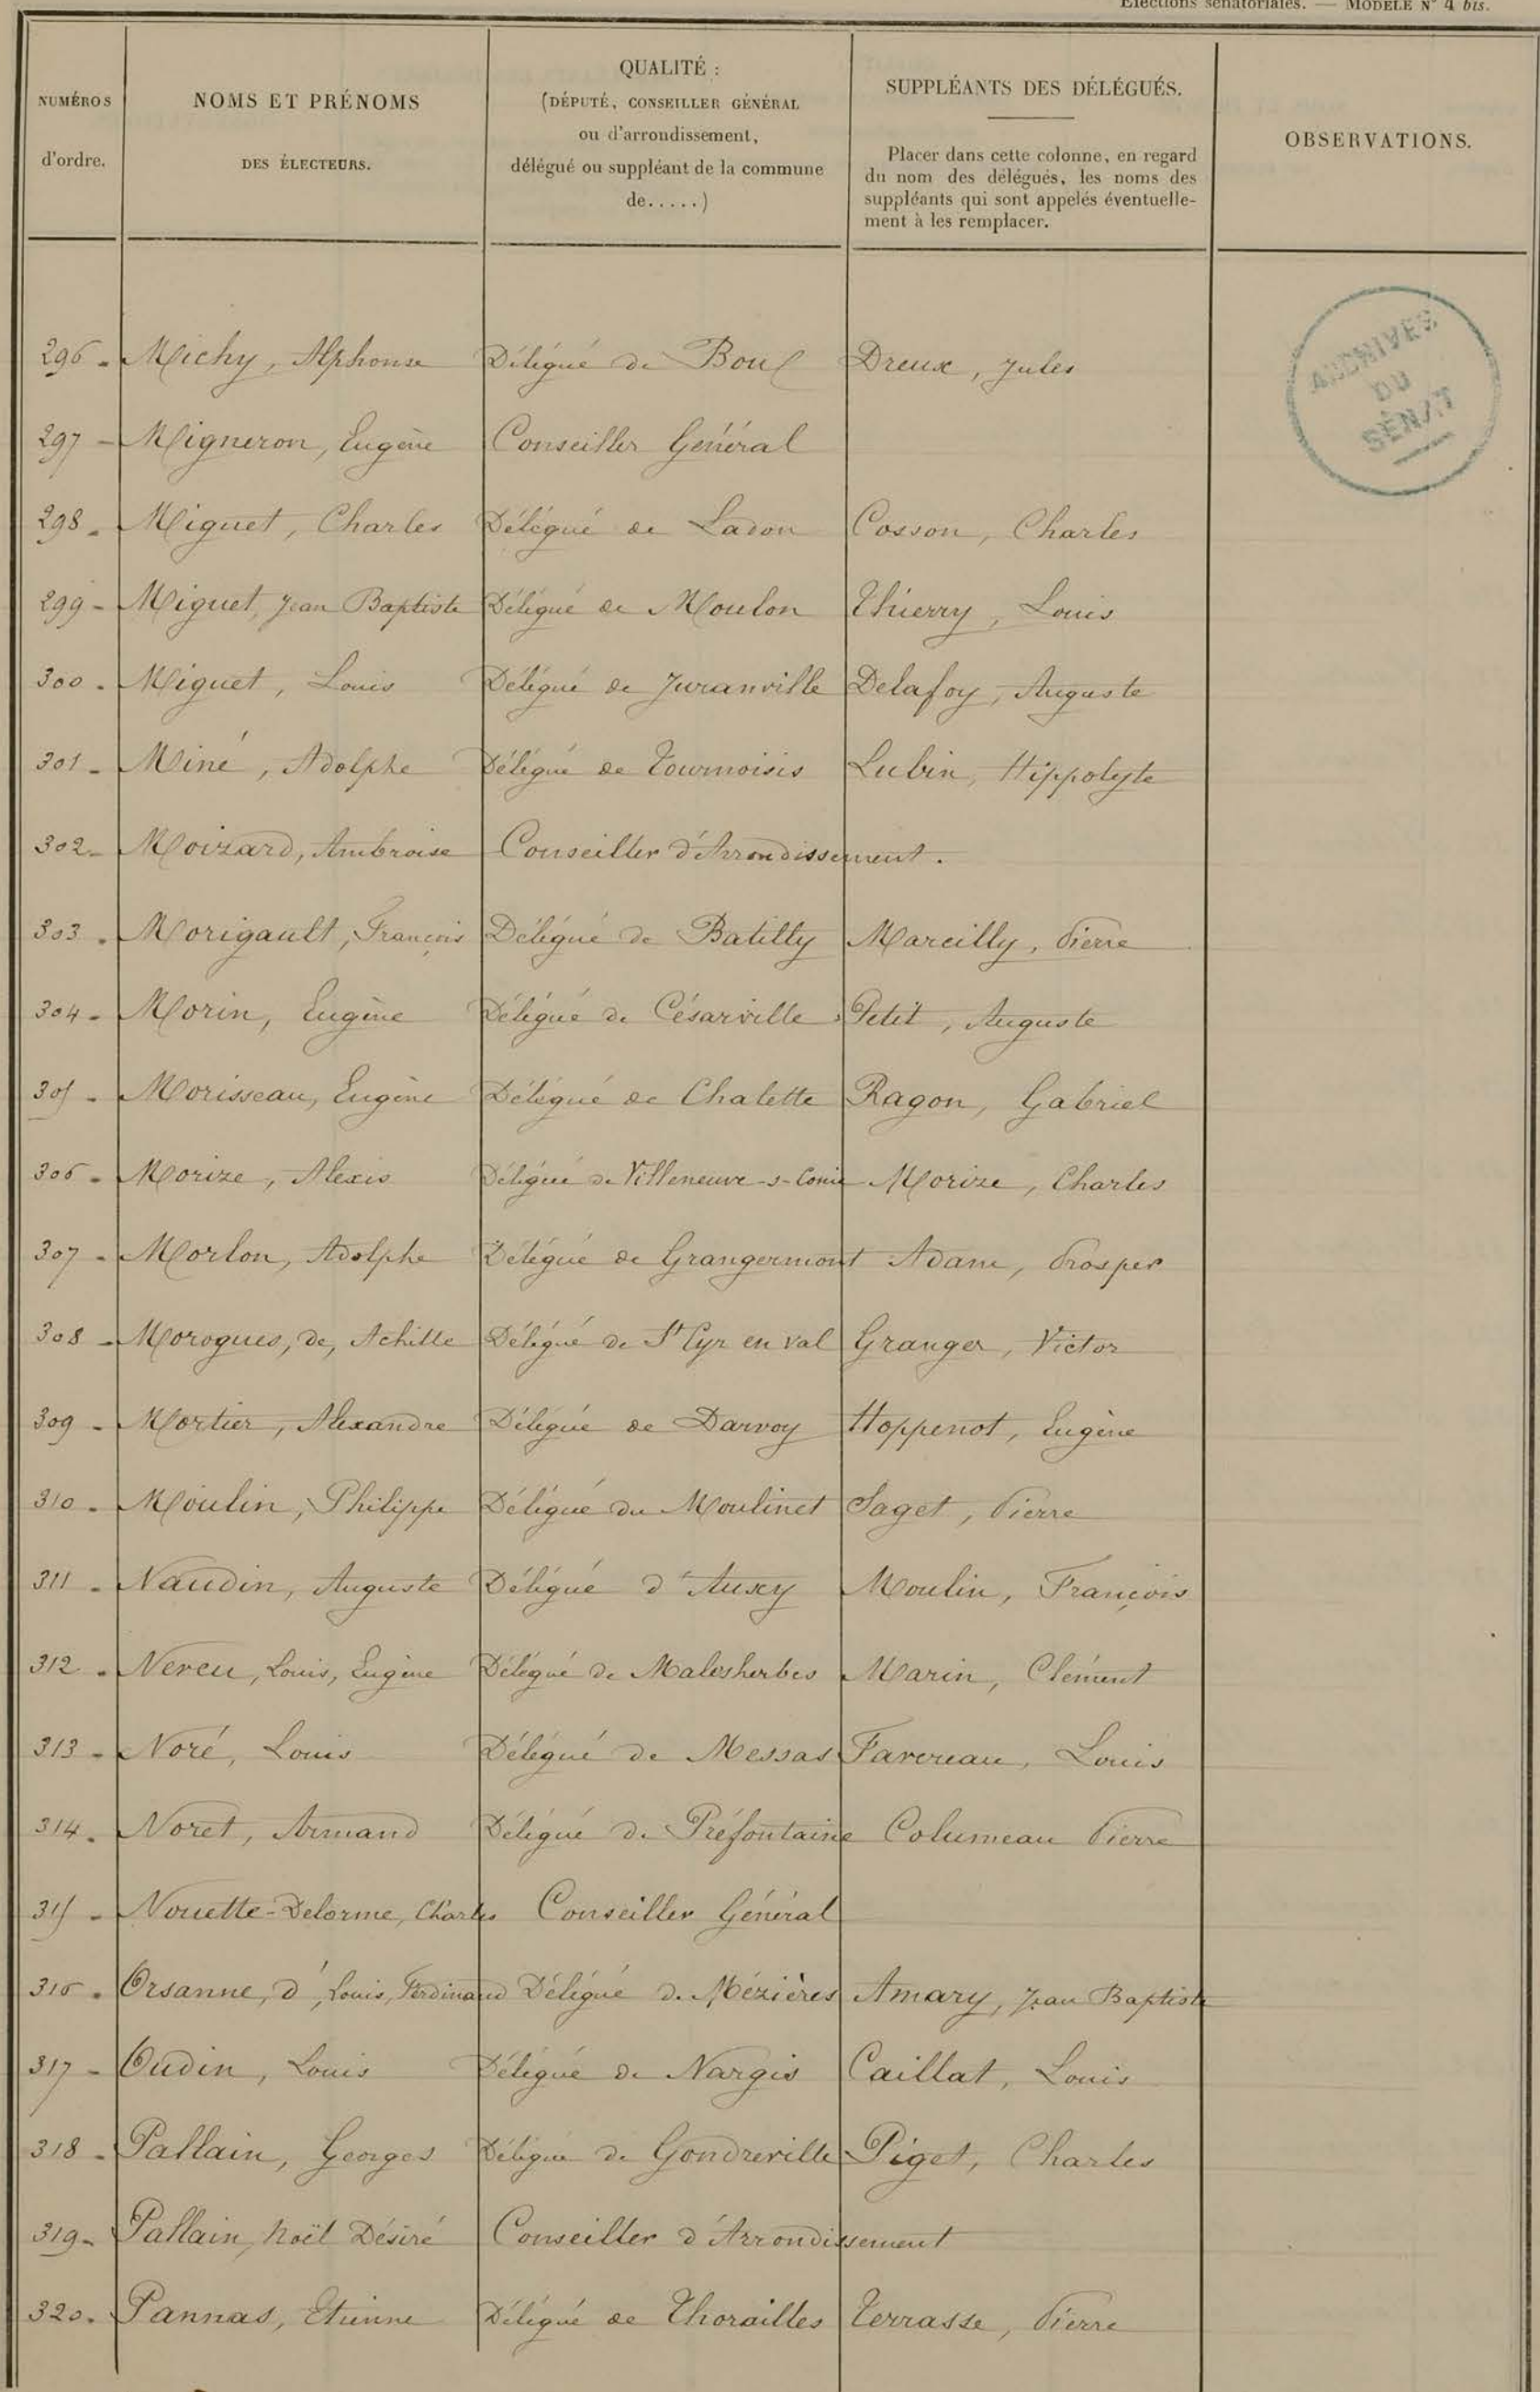 Elections sénatoriales. — MODÈLE N° 4 bis.
NUMÉROS
d'ordre.
NOMS ET PRÉNOMS
DES ÉLECTEURS.
QUALITÉ :
(DÉPUTÉ, CONSEILLER GÉNÉRAL
ou d'arrondissement,
délégué ou suppléant de la commune
de.....)
SUPPLÉANTS DES DÉLÉGUÉS.
Placer dans cette colonne, en regard
du nom des délégués, les noms des
suppléants qui sont appelés éventuelle-
ment à les remplacer.
OBSERVATIONS.
ARCHIVES
DU
SÉNAT
296 - Michy, Alphonse Délégué de Bou Dreux, Jules
297 - Migneron, Eugène Conseiller Général
298 - Miguet, Charles Délégué de Ladon Cosson, Charles
299 - Miguet, Jean Baptiste Délégué de Moulon Thierry, Louis
300 - Miguet, Louis Délégué de Juranville Delafoy, Auguste
301 - Miné, Adolphe Délégué de Tournoisis Lubin, Hippolyte
302 - Moizard, Ambroise Conseiller d'Arrondissement.
303 - Morigault, François Délégué de Batilly Marcilly, Pierre
304 - Morin, Eugène Délégué de Césarville Petit, Auguste
305 - Morisseau, Eugène Délégué de Chalette Ragon, Gabriel
306 - Morize, Alexis Délégué de Villeneuve-s-Conie Morize, Charles
307 - Morlon, Adolphe Délégué de Grangermont Adam, Prosper
308 - Morogues, de, Achille Délégué de St Cyr en val Granger, Victor
309 - Mortier, Alexandre Délégué de Darvoy Hoppenot, Eugène
310 - Moulin, Philippe Délégué du Moulinet Saget, Pierre
311 - Naudin, Auguste Délégué d'Auxy Moulin, François
312 - Nereu, Louis, Eugène Délégué de Malesherbes Marin, Clément
313 - Noré, Louis Délégué de Messas Favereau, Louis
314 - Noret, Armand Délégué de Préfontaine Columeau Pierre
315 - Nouette-Delorme, Charles Conseiller Général
316 - Orsanne, d', Louis, Ferdinand Délégué de Mézières Amary, Jean Baptiste
317 - Oudin, Louis Délégué de Nargis Caillat, Louis
318 - Pallain, Georges Délégué de Gondreville Piget, Charles
319 - Pallain, Noël Désiré Conseiller d'Arrondissement
320 - Pannas, Etienne Délégué de Thorailles Terrasse, Pierre